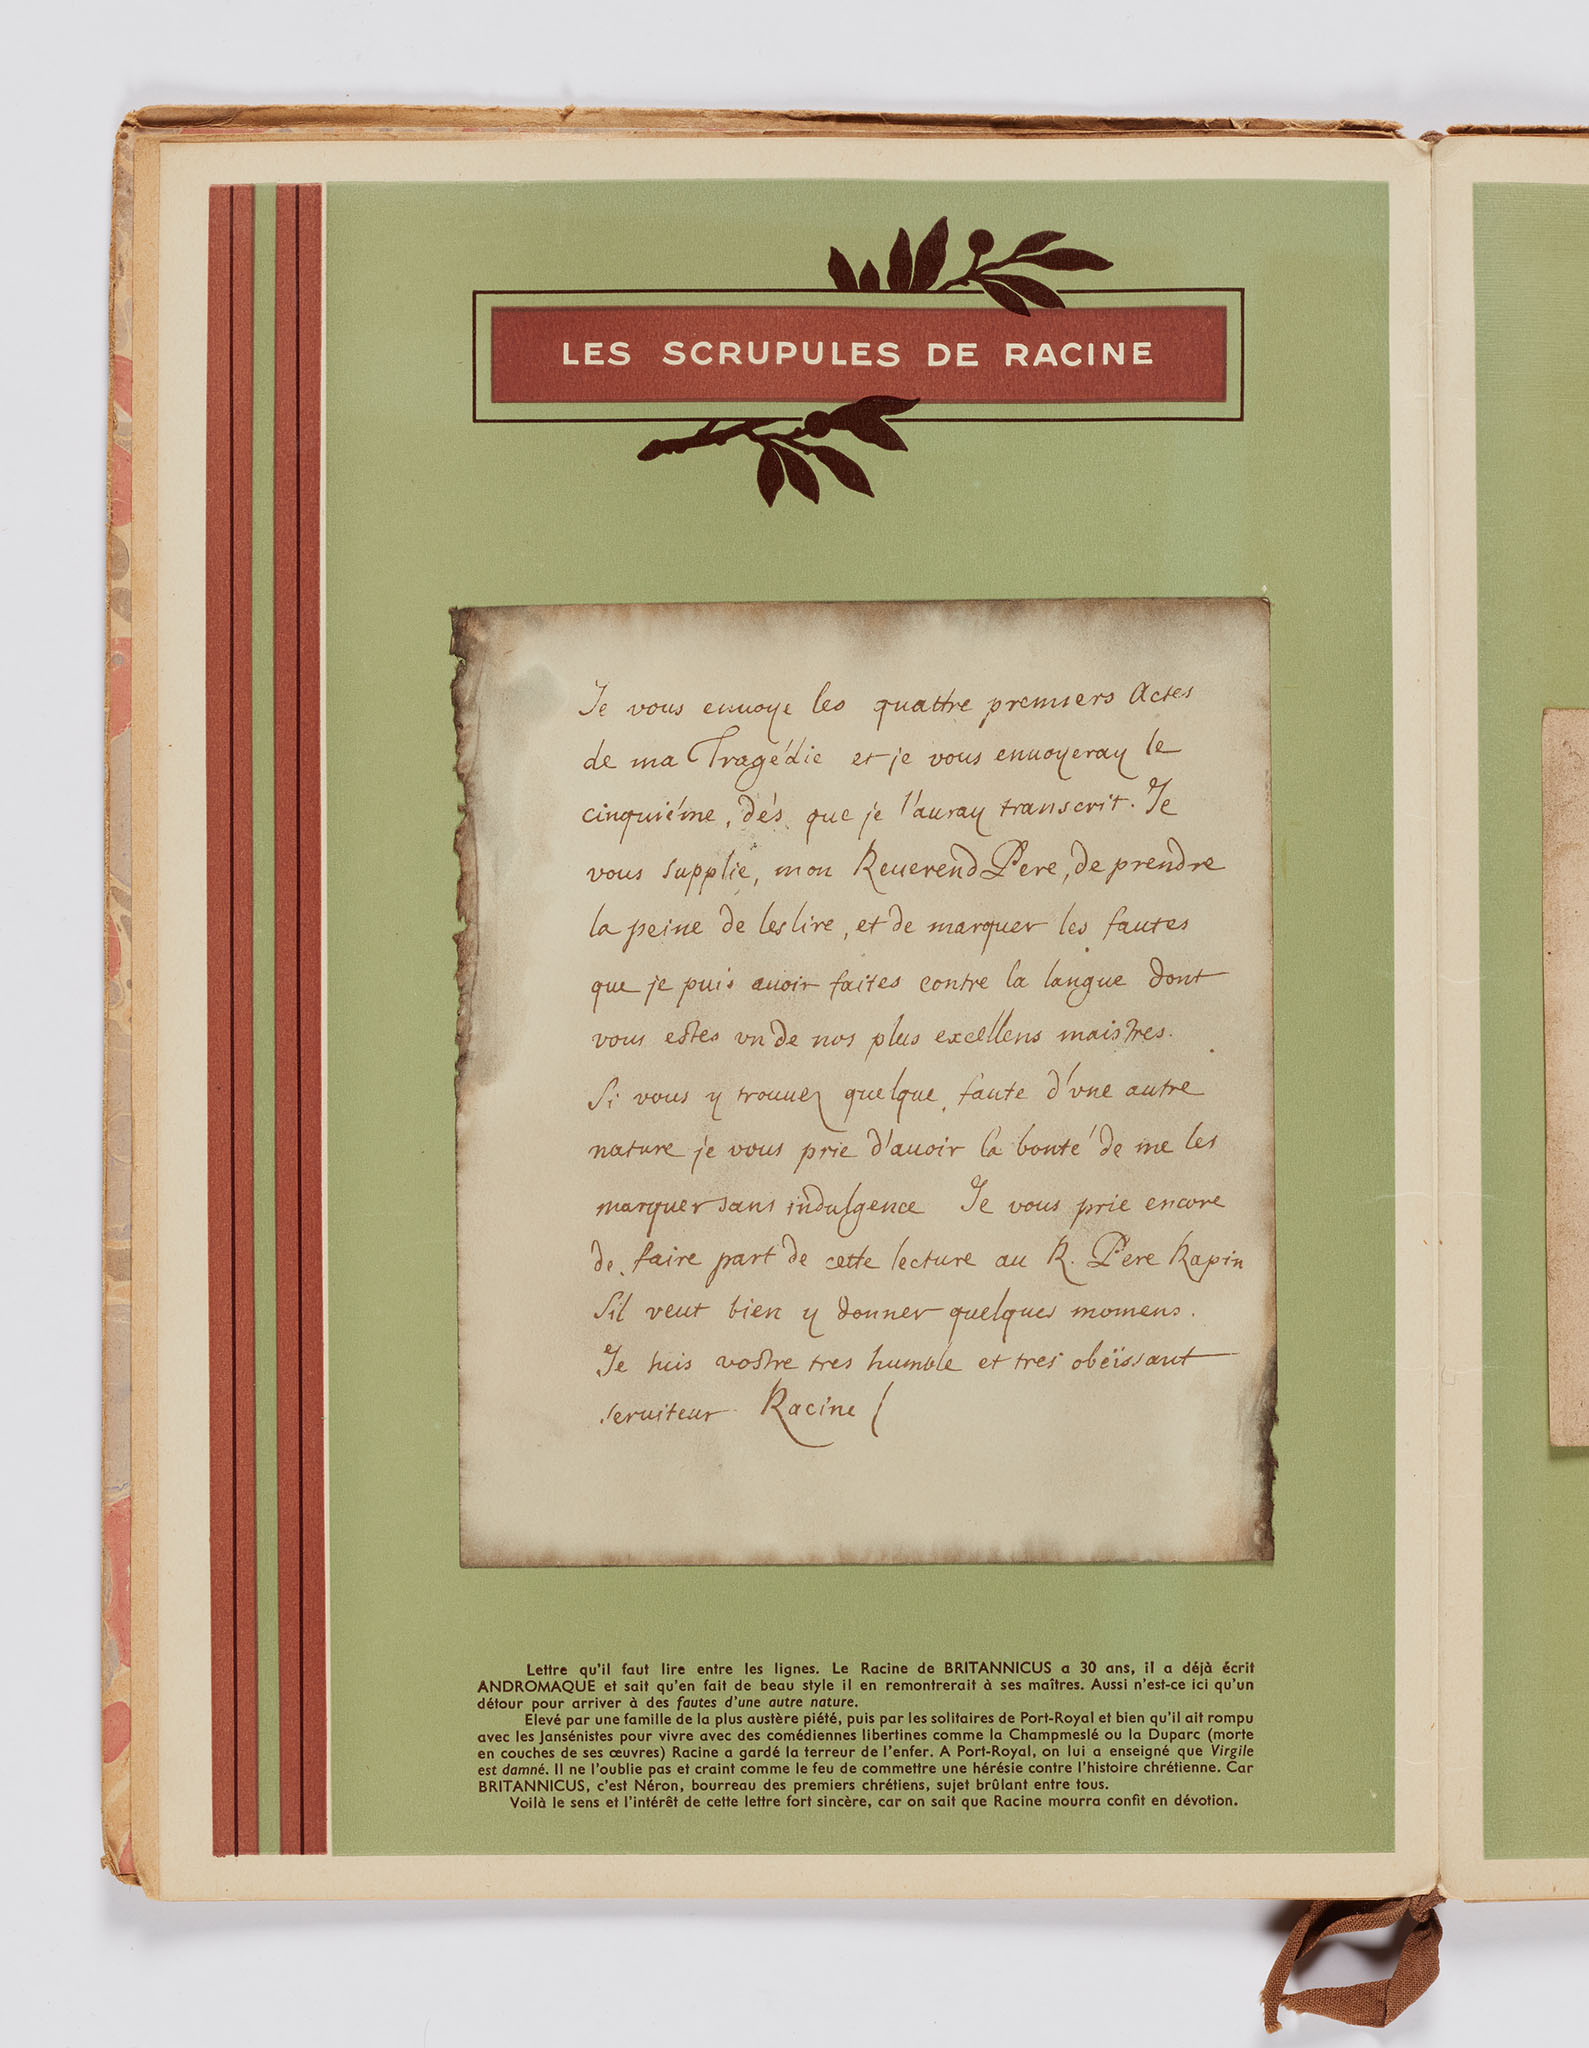 LES SCRUPULES DE RACINE
Je vous enuoye les quattre premiers Actes
de ma Tragédie et je vous enuoyeray le
cinquiéme, dés que je l'auray transcrit. Je
vous supplie, mon Reuerend Pere, de prendre
la peine de les lire, et de marquer les fautes
que je puis auoir faites contre la langue dont
vous estes vn de nos plus excellens maistres.
Si vous y trouuez quelque faute d'vne autre
nature je vous prie d'auoir la bonté de me les
marquer sans indulgence Je vous prie encore
de faire part de cette lecture au R. Pere Rapin
s'il veut bien y donner quelques momens.
Je suis vostre tres humble et tres obëissant
seruiteur Racine
Lettre qu'il faut lire entre les lignes. Le Racine de BRITANNICUS a 30 ans, il a déjà écrit
ANDROMAQUE et sait qu'en fait de beau style il en remontrerait à ses maîtres. Aussi n'est-ce ici qu'un
détour pour arriver à des fautes d'une autre nature.
Elevé par une famille de la plus austère piété, puis par les solitaires de Port-Royal et bien qu'il ait rompu
avec les Jansénistes pour vivre avec des comédiennes libertines comme la Champmeslé ou la Duparc (morte
en couches de ses œuvres) Racine a gardé la terreur de l'enfer. A Port-Royal, on lui a enseigné que Virgile
est damné. Il ne l'oublie pas et craint comme le feu de commettre une hérésie contre l'histoire chrétienne. Car
BRITANNICUS, c'est Néron, bourreau des premiers chrétiens, sujet brûlant entre tous.
Voilà le sens et l'intérêt de cette lettre fort sincère, car on sait que Racine mourra confit en dévotion.